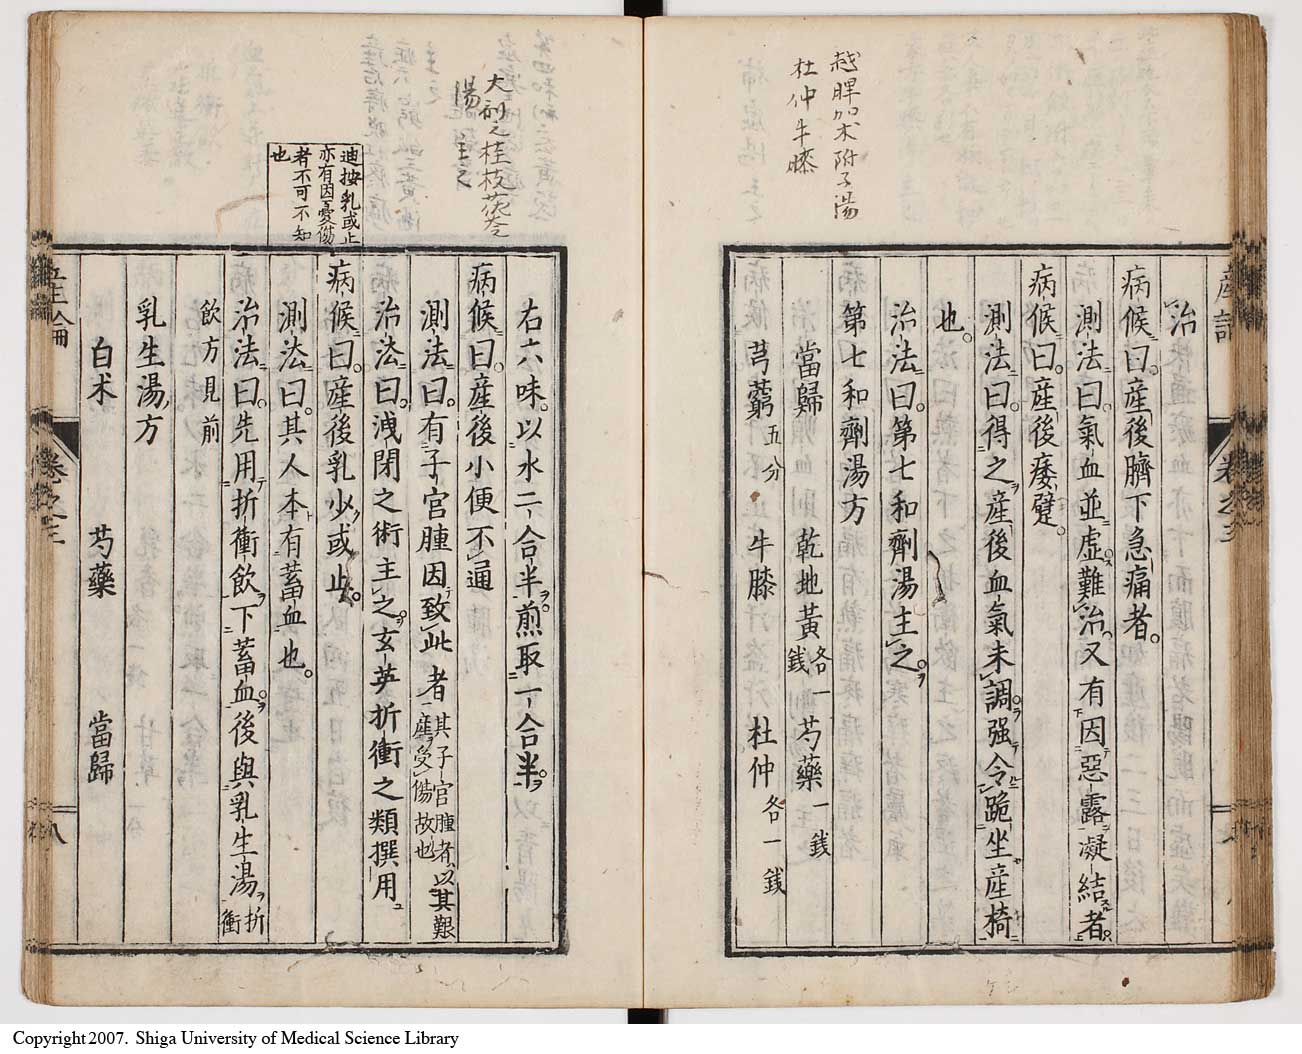 越脾加术附子湯
杜仲牛膝
産論
卷之三
治
病候曰産後臍下急痛者
測法曰氣血並虛難治又有因惡露凝結者
病候曰産後痿躄
測法曰得之産後血氣未調强令跪坐産椅
也
治法曰第七和劑湯主之
第七和劑湯方
當歸 乾地黃各一錢 芍藥一錢
芎藭五分 牛膝 杜仲各一錢
桂枝茯苓
湯主之
迪按乳或止
亦有因憂傷
者不可不知
也
右六味以水二合半煎取一合半
病候曰産後小便不通
測法曰有子宮腫因致此者其子宮腫者以其艱
産受傷故也
治法曰洩閉之術主之玄英折衝之類撰用
病候曰産後乳少或止
測法曰其人本有蓄血也
治法曰先用折衝飲下蓄血後與乳生湯折衝
飲方見前
乳生湯方
白术 芍藥 當歸
産論
卷之三
八
Copyright 2007. Shiga University of Medical Science Library